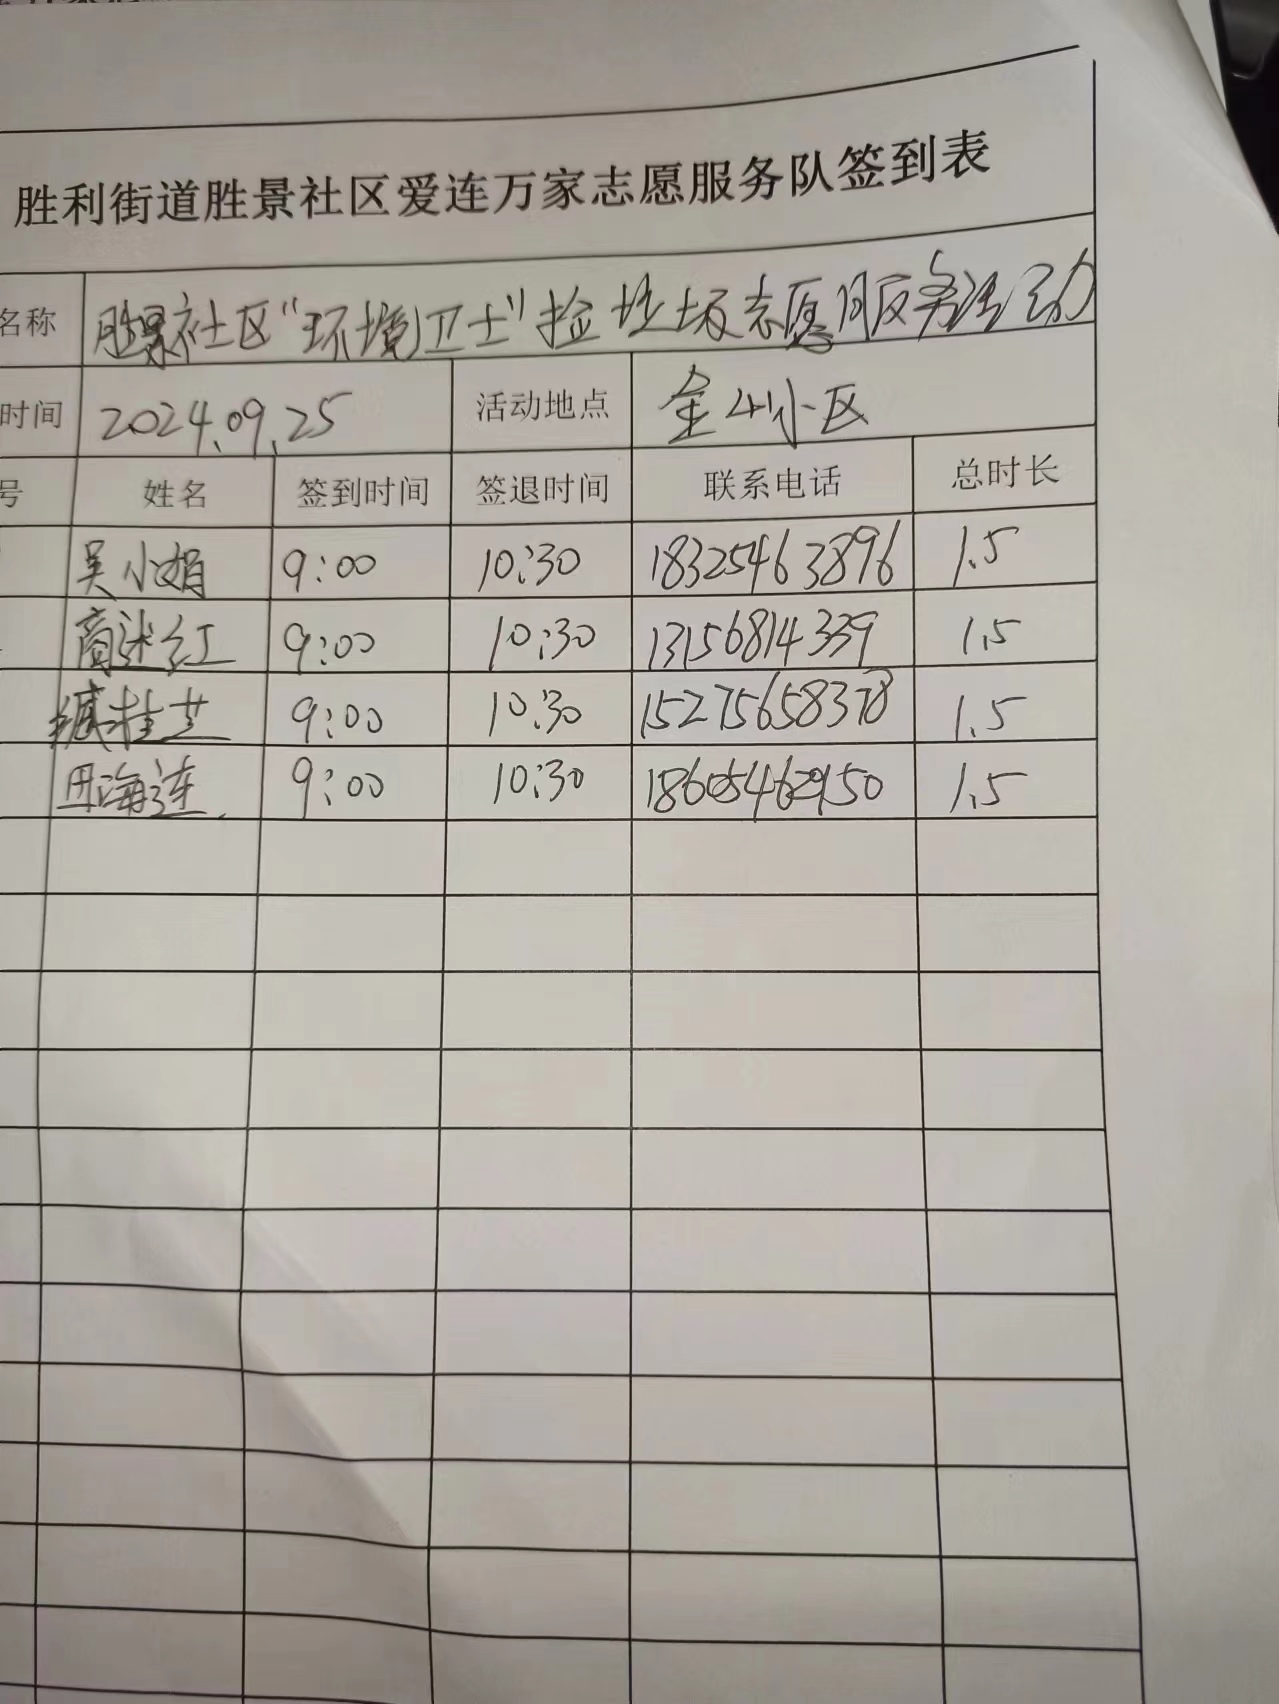 胜利街道胜景社区爱连万家志愿服务队签到表
名称 胜景社区"环境卫士"捡垃圾志愿服务活动
时间 2024.09.25 活动地点 金州小区
号 姓名 签到时间 签退时间 联系电话 总时长
吴小娟 9:00 10:30 18325463896 1.5
商述红 9:00 10:30 13156814339 1.5
臧桂芝 9:00 10:30 15275658378 1.5
田海莲 9:00 10:30 1.5